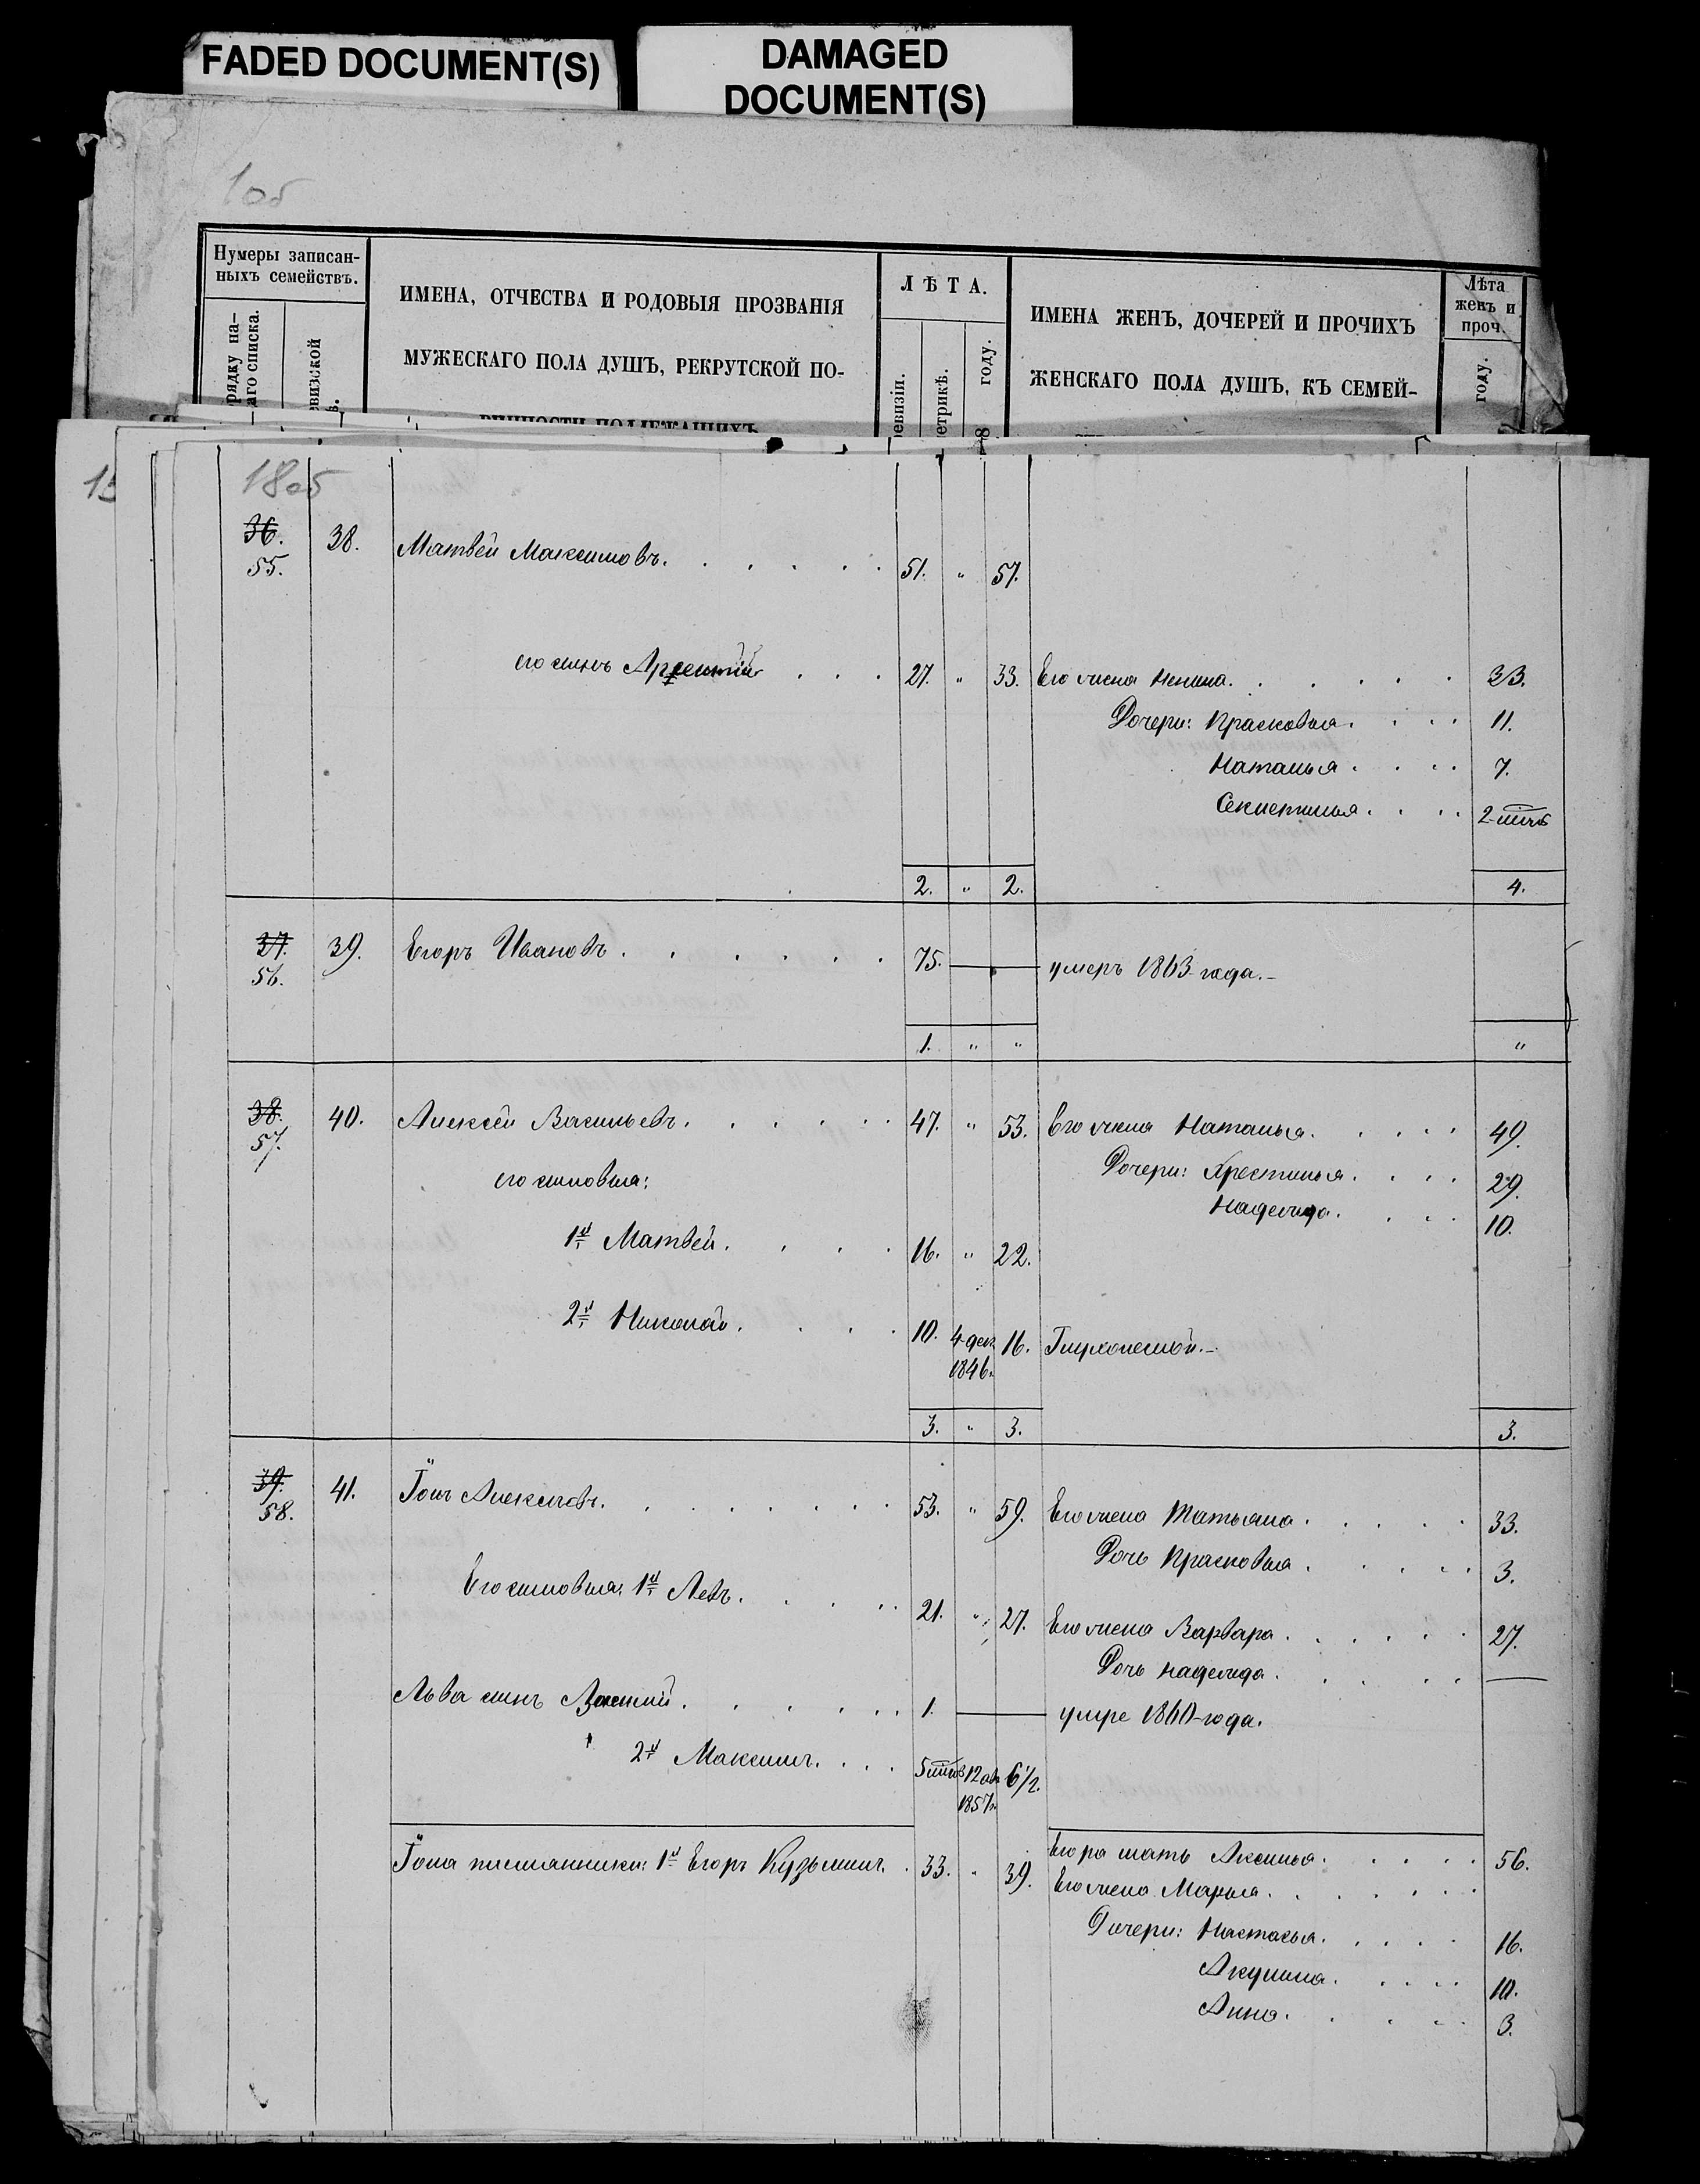 FADED DOCUMENT(S)
DAMAGED
DOCUMENT(S)
1об
Нумеры записан-
ныхъ семействъ.
рядку на-
аго списка.
евизской
ИМЕНА, ОТЧЕСТВА И РОДОВЫЯ ПРОЗВАНІЯ
МУЖЕСКАГО ПОЛА ДУШЪ, РЕКРУТСКОЙ ПО-
ВИННОСТИ ПОДЛЕЖАЩИХЪ
ЛѢТА.
евизіи.
етрикѣ.
8 году.
ИМЕНА ЖЕНЪ, ДОЧЕРЕЙ И ПРОЧИХЪ
ЖЕНСКАГО ПОЛА ДУШЪ, КЪ СЕМЕЙ-
Лѣта
женъ и
проч.
году.
15
18об
36. 38. Матвей Максимовъ. 51. " 57.
55.
его сынъ Арсентій 27. " 33. Его жена Ненила. 33.
Дочери: Прасковья. 11.
Наталья. 7.
Секлетинья. 2
2. " 2. 4.
37. 39. Егоръ Ивановъ. 75. — умеръ 1863 года.-
56.
1. " " "
38. 40. Алексѣй Васильевъ. 47. " 53. Его жена Наталья. 49.
57. Дочери: Хрестинья. 29.
его сыновья: Надежда. 10.
1й Матвей. 16. " 22.
2й Николай. 10. 4 дек. 16. Глухонемой.-
1846.
3. " 3. 3.
39. 41. Їонъ Алексѣевъ. 53. " 59. Его жена Татьяна. 33.
58. Дочь Прасковья. 3.
Его сыновья: 1й Левъ. 21. " 27. Его жена Варвара. 27.
Дочь Надежда. —
Льва сынъ 1. — умре 1860-года.
2й Максимъ. 5 12 6½.
1857.
Їона племянники: 1й Егоръ Кузьминъ. 33. " 39. Егора мать Аксинья. 56.
Его жена Марья.
Дочери: Настасья. 16.
Акулина. 10.
Анна. 3.